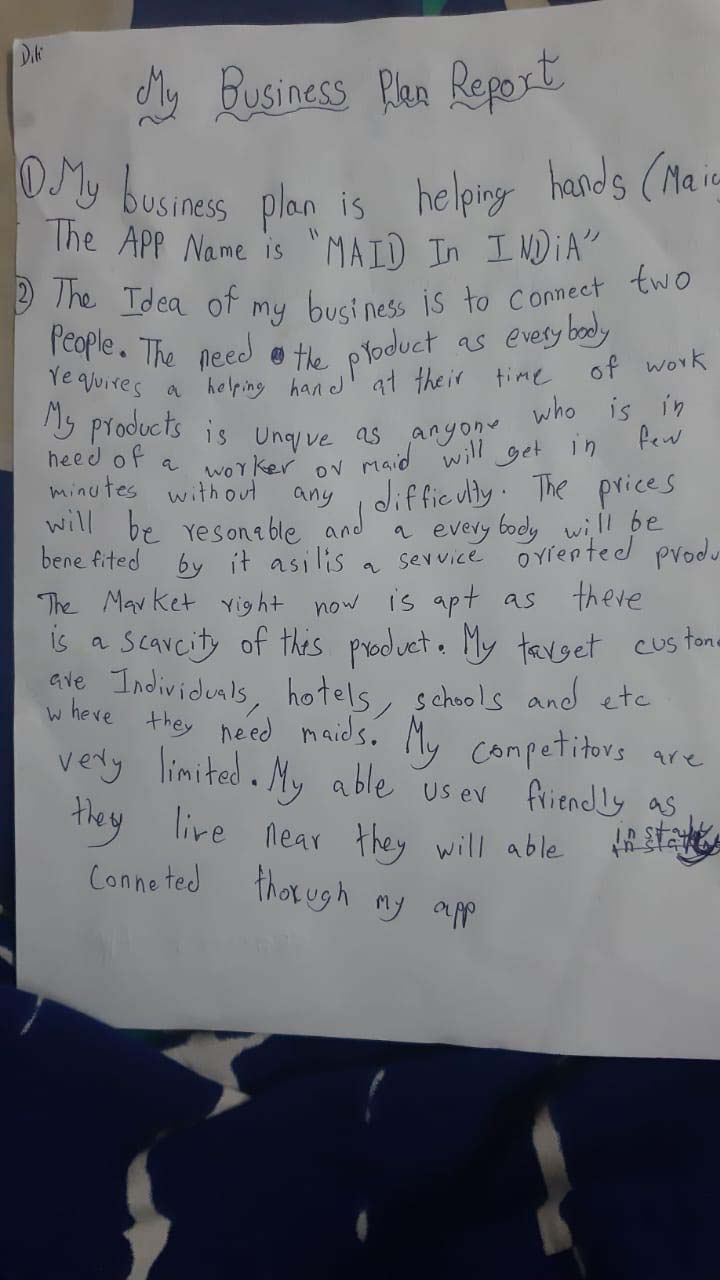 Diti
My Business Plan Report
① My business plan is helping hands (Maid
The APP Name is "MAID In INDiA"
② The Idea of my business is to connect two
People. The need the product as everybody
requires a helping hand at their time of work
My products is Unqve as anyone who is in
need of a worker or maid will get in few
minutes without any difficulty. The prices
will be resonable and a everybody will be
benefited by it asilis a service oriented produ
The Market right now is apt as there
is a scarcity of this product. My target custome
are Individuals, hotels, schools and etc
where they need maids. My competitors are
very limited. My able user friendly as
they live near they will able
Conneted thorugh my app